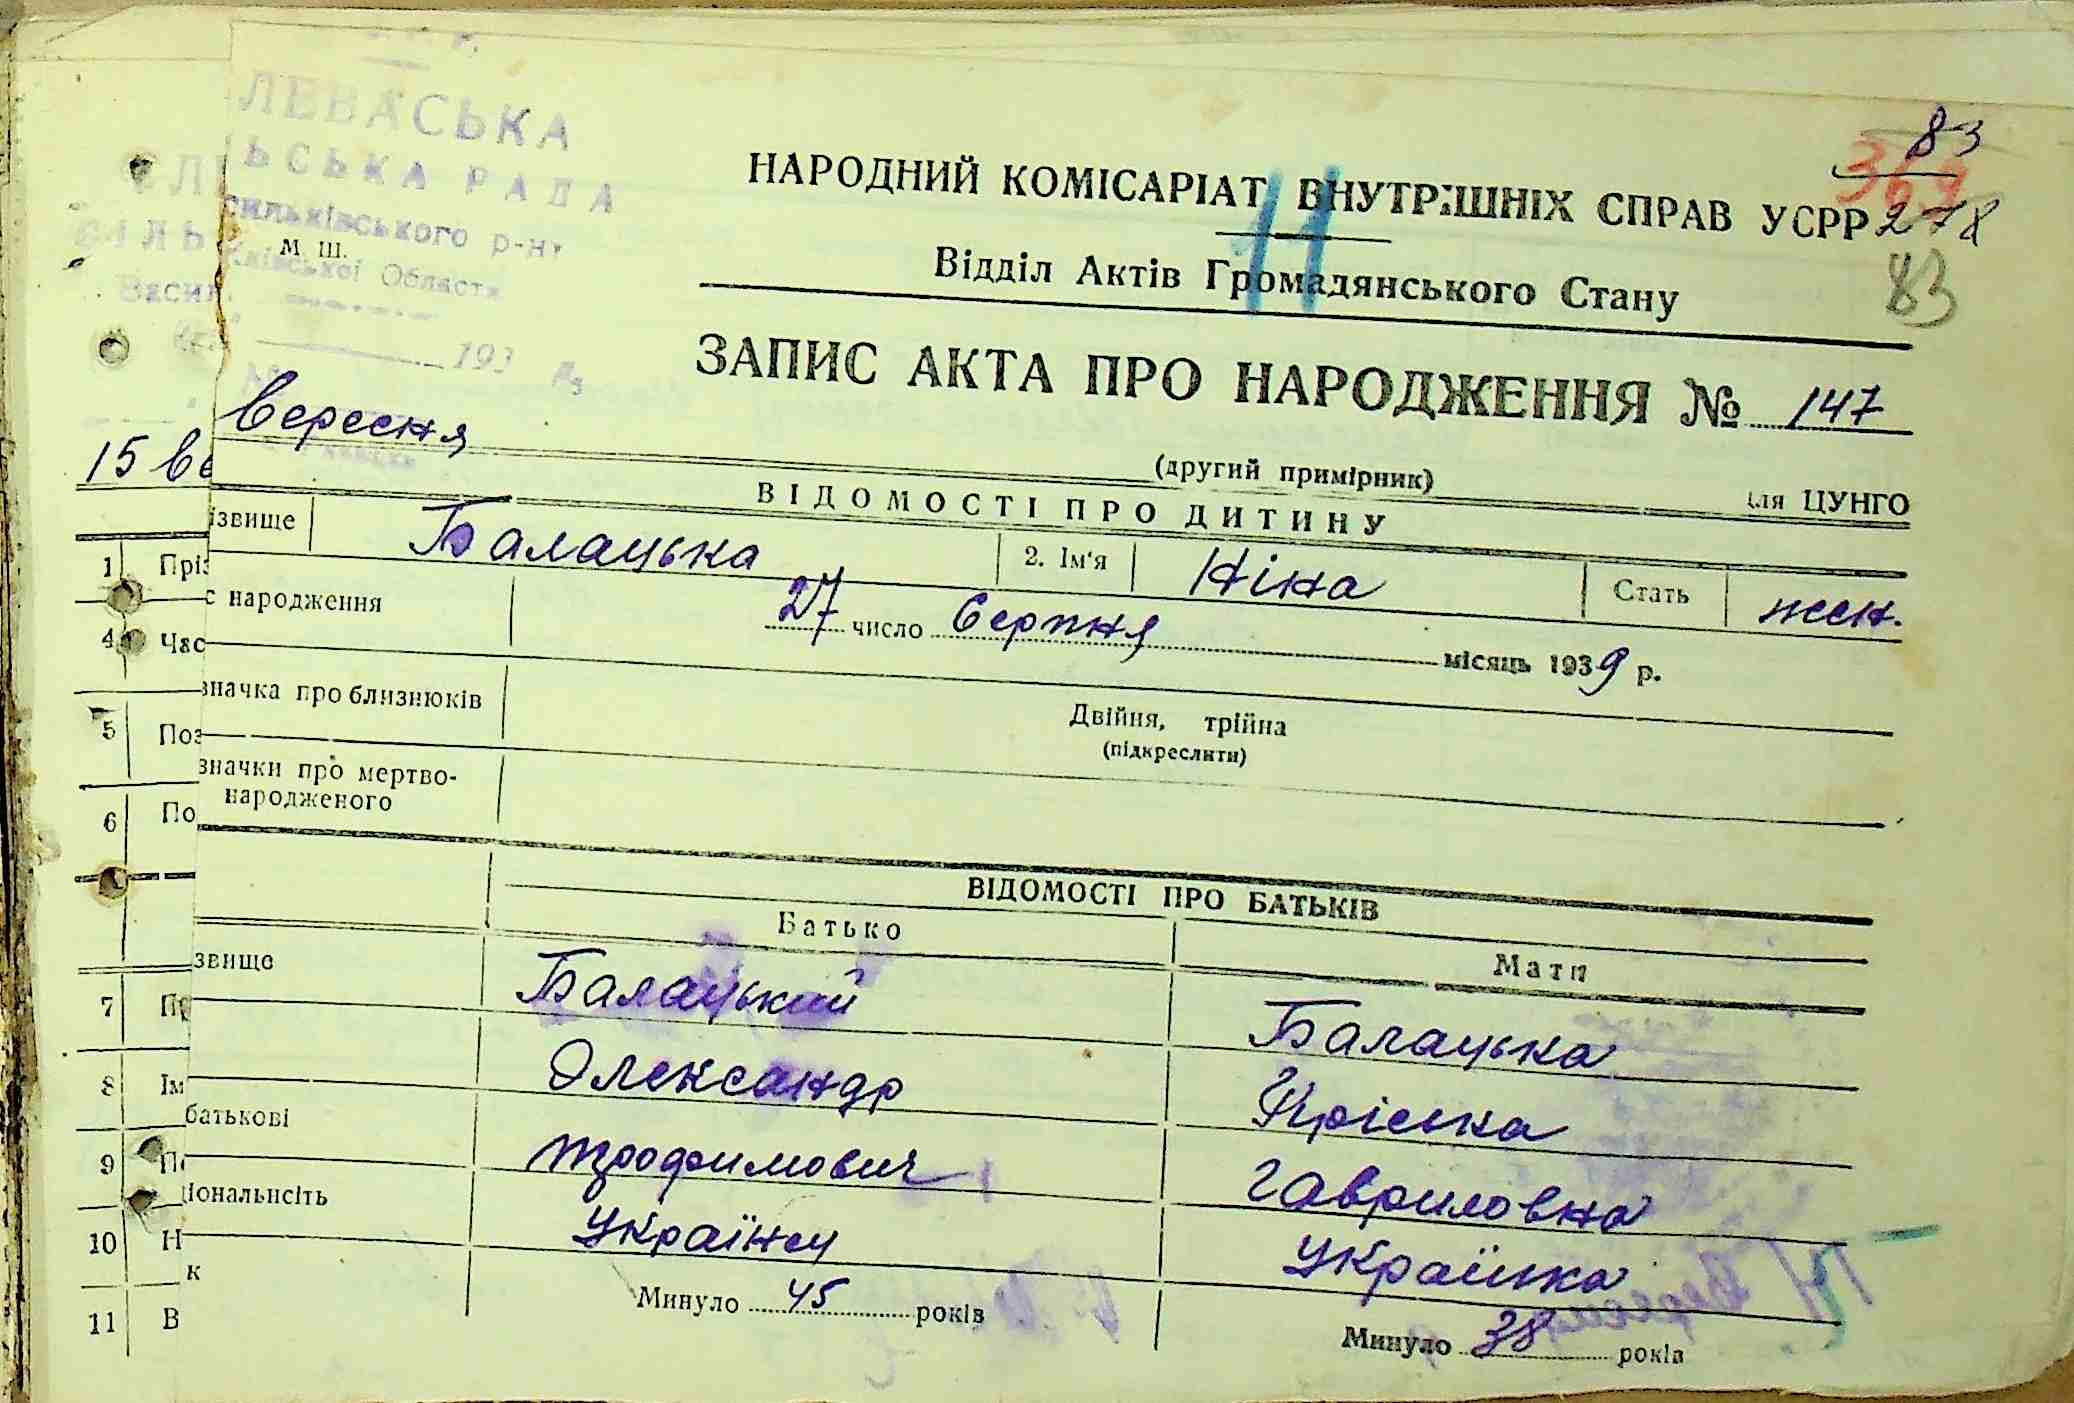 ЛЕВАСЬКА
ЬСЬКА РАДА
сильківського р-ну
М. Ш.
Київської Области
193
83
369
НАРОДНИЙ КОМІСАРІАТ ВНУТРІШНІХ СПРАВ УСРР 278
11
Відділ Актів Громадянського Стану
83
ЗАПИС АКТА ПРО НАРОДЖЕННЯ № 147
вересня
15 ве
(другий примірник)
для ЦУНГО
ВІДОМОСТІ ПРО ДИТИНУ
ізвище Балацька 2. Ім'я Ніна Стать жен.
1 Пріз
с народження 27 число серпня місяць 1939 р.
4 Час
значка про близнюків Двійня, трійна
(підкреслити)
5 Поз
значки про мертво-
народженого
6 По
ВІДОМОСТІ ПРО БАТЬКІВ
Батько Мати
звище Балацький Балацька
7 Пр
Олександр Пріська
8 Ім
батькові Трофимович Гавриловна
9 По
ціональність Українец Українка
10 Н
к Минуло 45 років Минуло 38 років
11 В